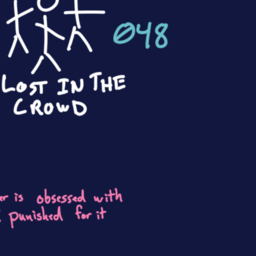 048
LOST IN THE
CROWD
er is obsessed with
punished for it